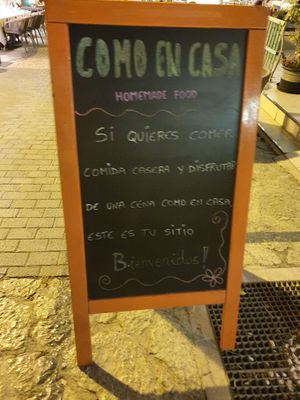 COMO EN CASA
HOMEMADE FOOD
SI QUIERES COMER
COMIDA CASERA Y DISFRUTAR
DE UNA CENA COMO EN CASA
ESTE ES TU SITIO
Bienvenidos!